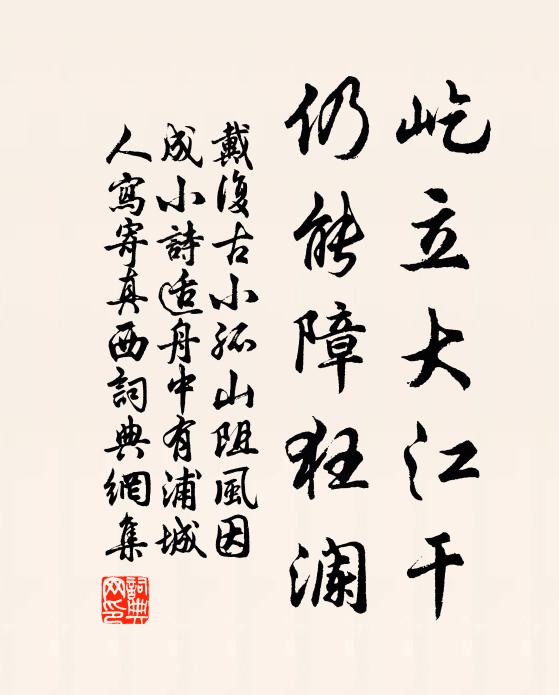 屹立大江干
仍能障狂澜
戴復古小孤山阻風因
成小詩适舟中有浦城
人寫寄真西詞典網集
詞典網印